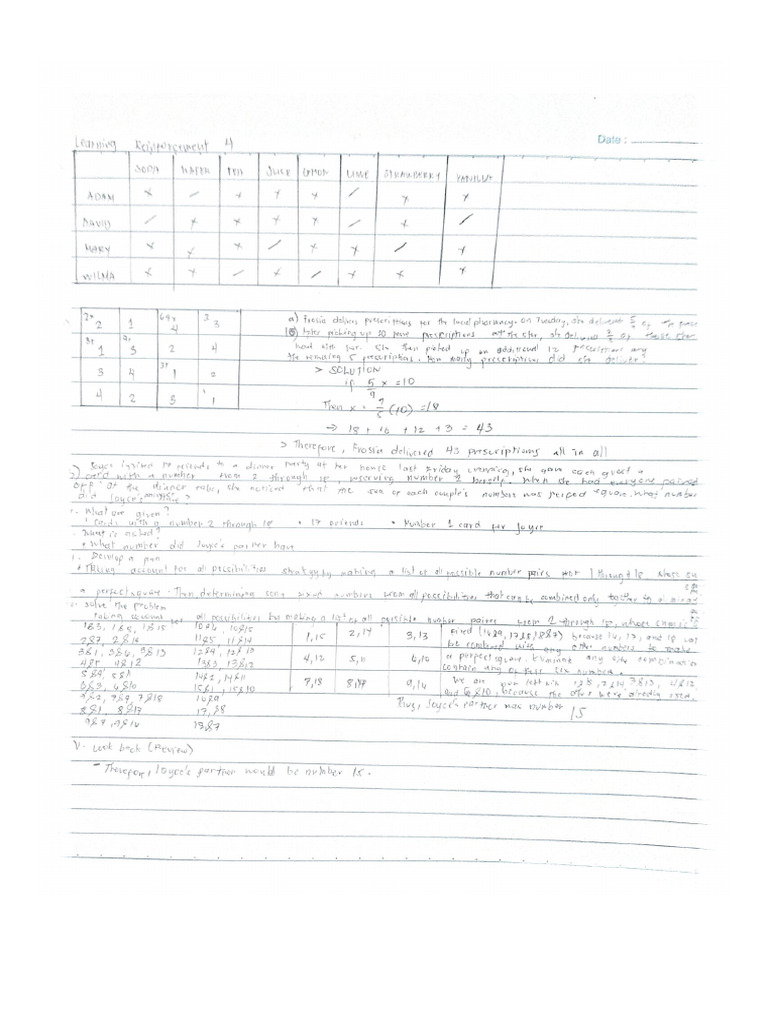 Learning Reinforcement 4
Date :
SODA WATER TEA JUICE LEMON LIME STRAWBERRY VANILLA
ADAM x / x x x / x x
DAVID / x x x x x x /
MARY x x x / x x / x
WILMA x x / x / x x x
2x 2 1 64x 4 3 3
1 3 2 4
3 4 1 2
4 2 3 1
a) Frosia delivers prescriptions for the local pharmacy. on Tuesday, she delivered 5/9 of the
After picking up 10 more prescriptions at the she delivered of
had with her. She then picked up an additional 12 prescriptions
the remaining prescriptions. How many prescriptions did she deliver?
> SOLUTION
if 5/9 x = 10
Then x = 9/5 (10) = 18
→ 18 + 10 + 12 + 3 = 43
> Therefore, Frosia delivered 43 prescriptions all in all
Joyce invited 17 friends to a dinner party at her house last Friday evening, she gave each guest a
card with a number from 2 through 18, reserving number 1 When she had everyone paired
off at the dinner table, she noticed that the sum of each couple's numbers was perfect square. What number
did Joyce's have?
What are given?
Cards with a number 2 through 18 • 17 friends • Number 1 card for Joyce
What is asked?
• What number did Joyce's partner have
Develop a plan
• Taking account for all possibilities strategy by making a list of all possible number pairs for 1 through 18, whose
a perfect square. Then determining numbers from all possibilities that can be combined only
Solve the problem
all possibilities by making a list of all possible number paires from 2 through 18, whose
1&3, 1&8, 1&15 10&6 10&15
2&7, 2&14 11&5 11&14
3&1, 3&6, 3&13 12&4, 12&13
4&5 4&12 13&3, 13&12
5&4, 5&11 14&2, 14&11
6&3, 6&10 15&1, 15&10
7&2, 7&9, 7&18 16&9
8&1 8&17 17,&8
9&7, 9&16 18&7
1,15 2,14 3,13
4,12 5,11 6,10
7,18 8,17 9,16
(16&9, 17&8, 18&7) because 16, 17, and 18 not
be combined with any other numbers to make
a perfect square. Eliminate any other combination
contain any of these six numbers.
We are then left with 2&14 3&13, 4&12
and 6&10, because the others were already used.
Thus, Joyce's partner has number 15
V. Look back (Review)
- Therefore, Joyce's partner would be number 15.